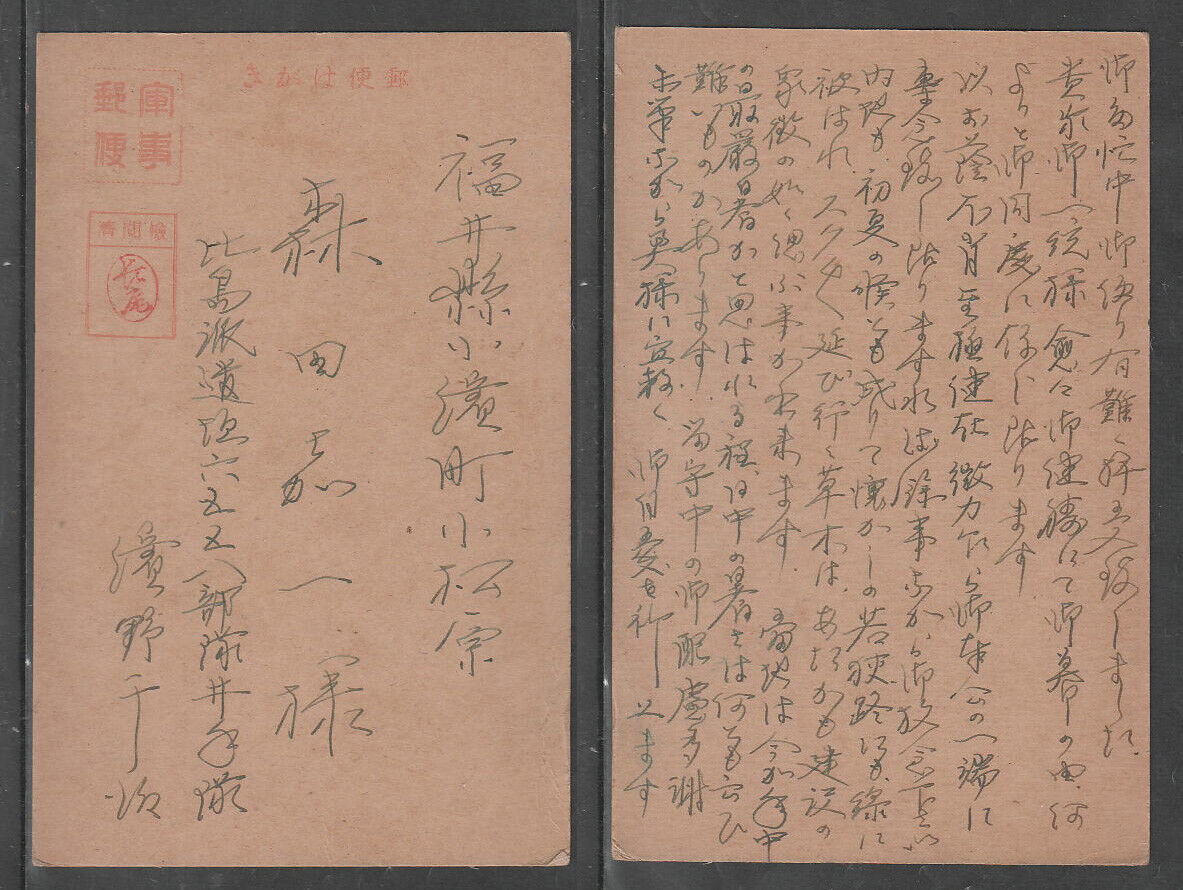 郵便はがき
軍事
郵便
検閲済
長尾
福井縣小濱町小松原
森田嘉一様
比島派遣垣六五五八部隊井手隊
濱野千次
御多忙中御便り有難く拝受致しました
貴家御一統様愈々御健勝にて御暮の由何
よりと御同慶に存じ居ります
以お蔭不肖至極健在微力乍ら御奉公の一端に
専念致し居りますれば余事乍から御放念下さい
内地も初夏の候とも成りて懐かしの若狭路にも緑に
被はれスクスク延び行く草木はあたかも建設の
象徴の如く偲ぶ事か出来ます 当地は今か年中
の最厳暑かと思はれる程日中の暑さは何とも云ひ
難いものかあります 留守中の御配慮多謝
末筆乍から奥様に宜敷く 御自愛を祈し上ます